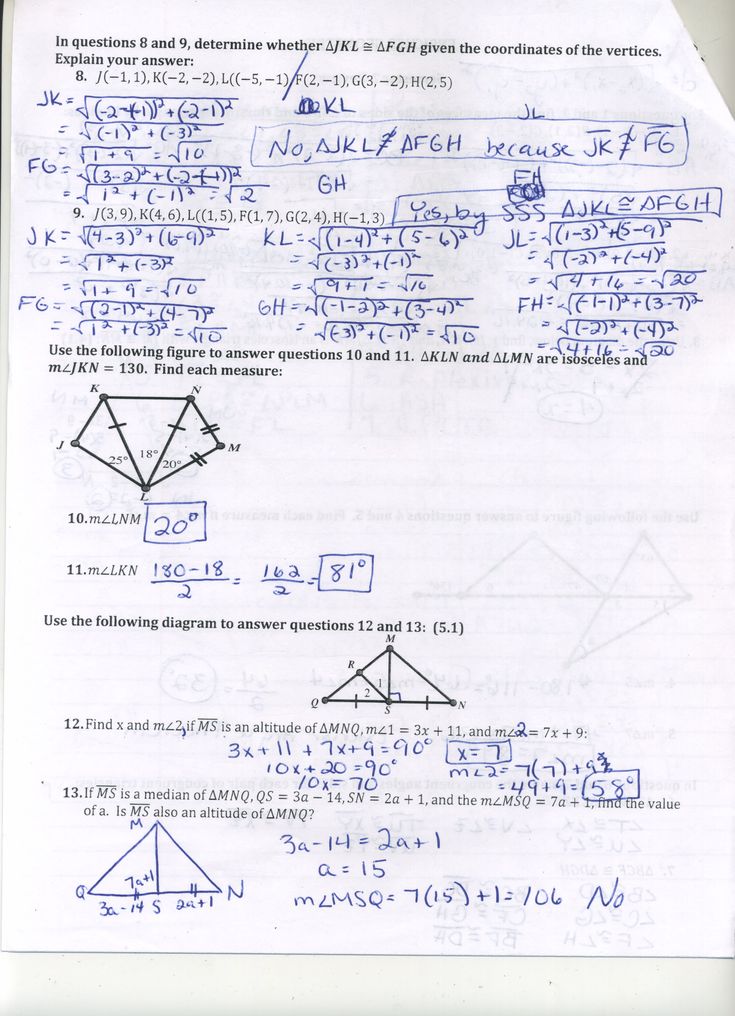 In questions 8 and 9, determine whether ΔJKL ≅ ΔFGH given the coordinates of the vertices.
Explain your answer:
8. J(−1, 1), K(−2, −2), L((−5, −1) F(2, −1), G(3, −2), H(2, 5)
JK = √(-2-(-1))² + (-2-1)²
KL
JL
= √(-1)² + (-3)²
= √1 + 9 = √10
No, ΔJKL ≇ ΔFGH because JK ≇ FG
FG = √(3-2)² + (-2-(-1))²
= √1² + (-1)² = √2
GH
FH
9. J(3, 9), K(4, 6), L((1, 5), F(1, 7), G(2, 4), H(−1, 3)
Yes, by SSS ΔJKL ≅ ΔFGH
JK = √(4-3)² + (6-9)²
KL = √(1-4)² + (5-6)²
JL = √(1-3)² + (5-9)²
= √1² + (-3)²
= √(-3)² + (-1)²
= √(-2)² + (-4)²
= √1 + 9 = √10
= √9 + 1 = √10
= √4 + 16 = √20
FG = √(2-1)² + (4-7)²
GH = √(-1-2)² + (3-4)²
FH = √(-1-1)² + (3-7)²
= √1² + (-3)² = √10
= √(-3)² + (-1)² = √10
= √(-2)² + (-4)²
= √4+16 = √20
Use the following figure to answer questions 10 and 11. ΔKLN and ΔLMN are isosceles and
m∠JKN = 130. Find each measure:
K N
J M
25° 18° 20°
L
10. m∠LNM 20°
11. m∠LKN 180-18/2 = 162/2 = 81°
Use the following diagram to answer questions 12 and 13: (5.1)
M
R
1
2
Q S N
12. Find x and m∠2, if MS is an altitude of ΔMNQ, m∠1 = 3x + 11, and m∠2 = 7x + 9:
3x + 11 + 7x + 9 = 90° x = 7
10x + 20 = 90° m∠2 = 7(7) + 9
10x = 70 = 49 + 9 = 58°
13. If MS is a median of ΔMNQ, QS = 3a − 14, SN = 2a + 1, and the m∠MSQ = 7a + 1, find the value
of a. Is MS also an altitude of ΔMNQ?
M
3a - 14 = 2a + 1
a = 15
7a+1
Q N
3a-14 S 2a+1
m∠MSQ = 7(15) + 1 = 106 No